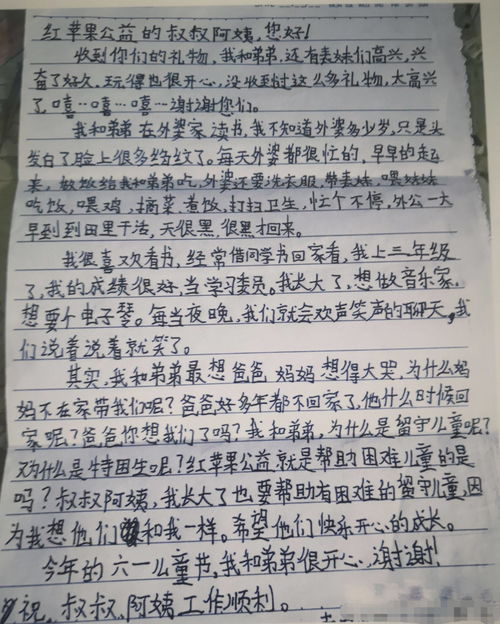 红苹果公益的叔叔阿姨,您好!
收到你们的礼物,我和弟弟,还有表妹们高兴,兴
奋了好久,玩得也很开心,没收到过这么多礼物,大高兴
了,嘻…嘻…嘻…谢谢您们。
我和弟弟在外婆家读书,我不知道外婆多少岁,只是头
发白了脸上很多纹了。每天外婆都很忙的,早早的起
来,做饭给我和弟弟吃,外婆还要洗衣服,带表妹,喂妹妹
吃饭,喂鸡,摘菜,煮饭,打扫卫生,忙个不停,外公一大
早到到田里干活,天很黑,很黑才回来。
我很喜欢看书,经常借同学书回家看,我上三年级
了,我的成绩很好,当学习委员。我长大了,想做音乐家,
想要个电子琴。每当夜晚,我们就会欢声笑声的聊天,我
们说着说着就笑了。
其实,我和弟弟最想爸爸,妈妈想得大哭,为什么妈
妈不在家带我们呢?爸爸好多年都不回家了,他什么时候回
家呢?爸爸你想我们了吗?我和弟弟,为什么是留守儿童呢?
为什么是特困生呢?红苹果公益就是帮助困难儿童的是
吗?叔叔阿姨,我长大了也要帮助有困难的留守儿童,因
为我想他们和我一样。希望他们快乐开心的成长。
今年的六一儿童节,我和弟弟很开心,谢谢!
祝叔叔,阿姨工作顺利。